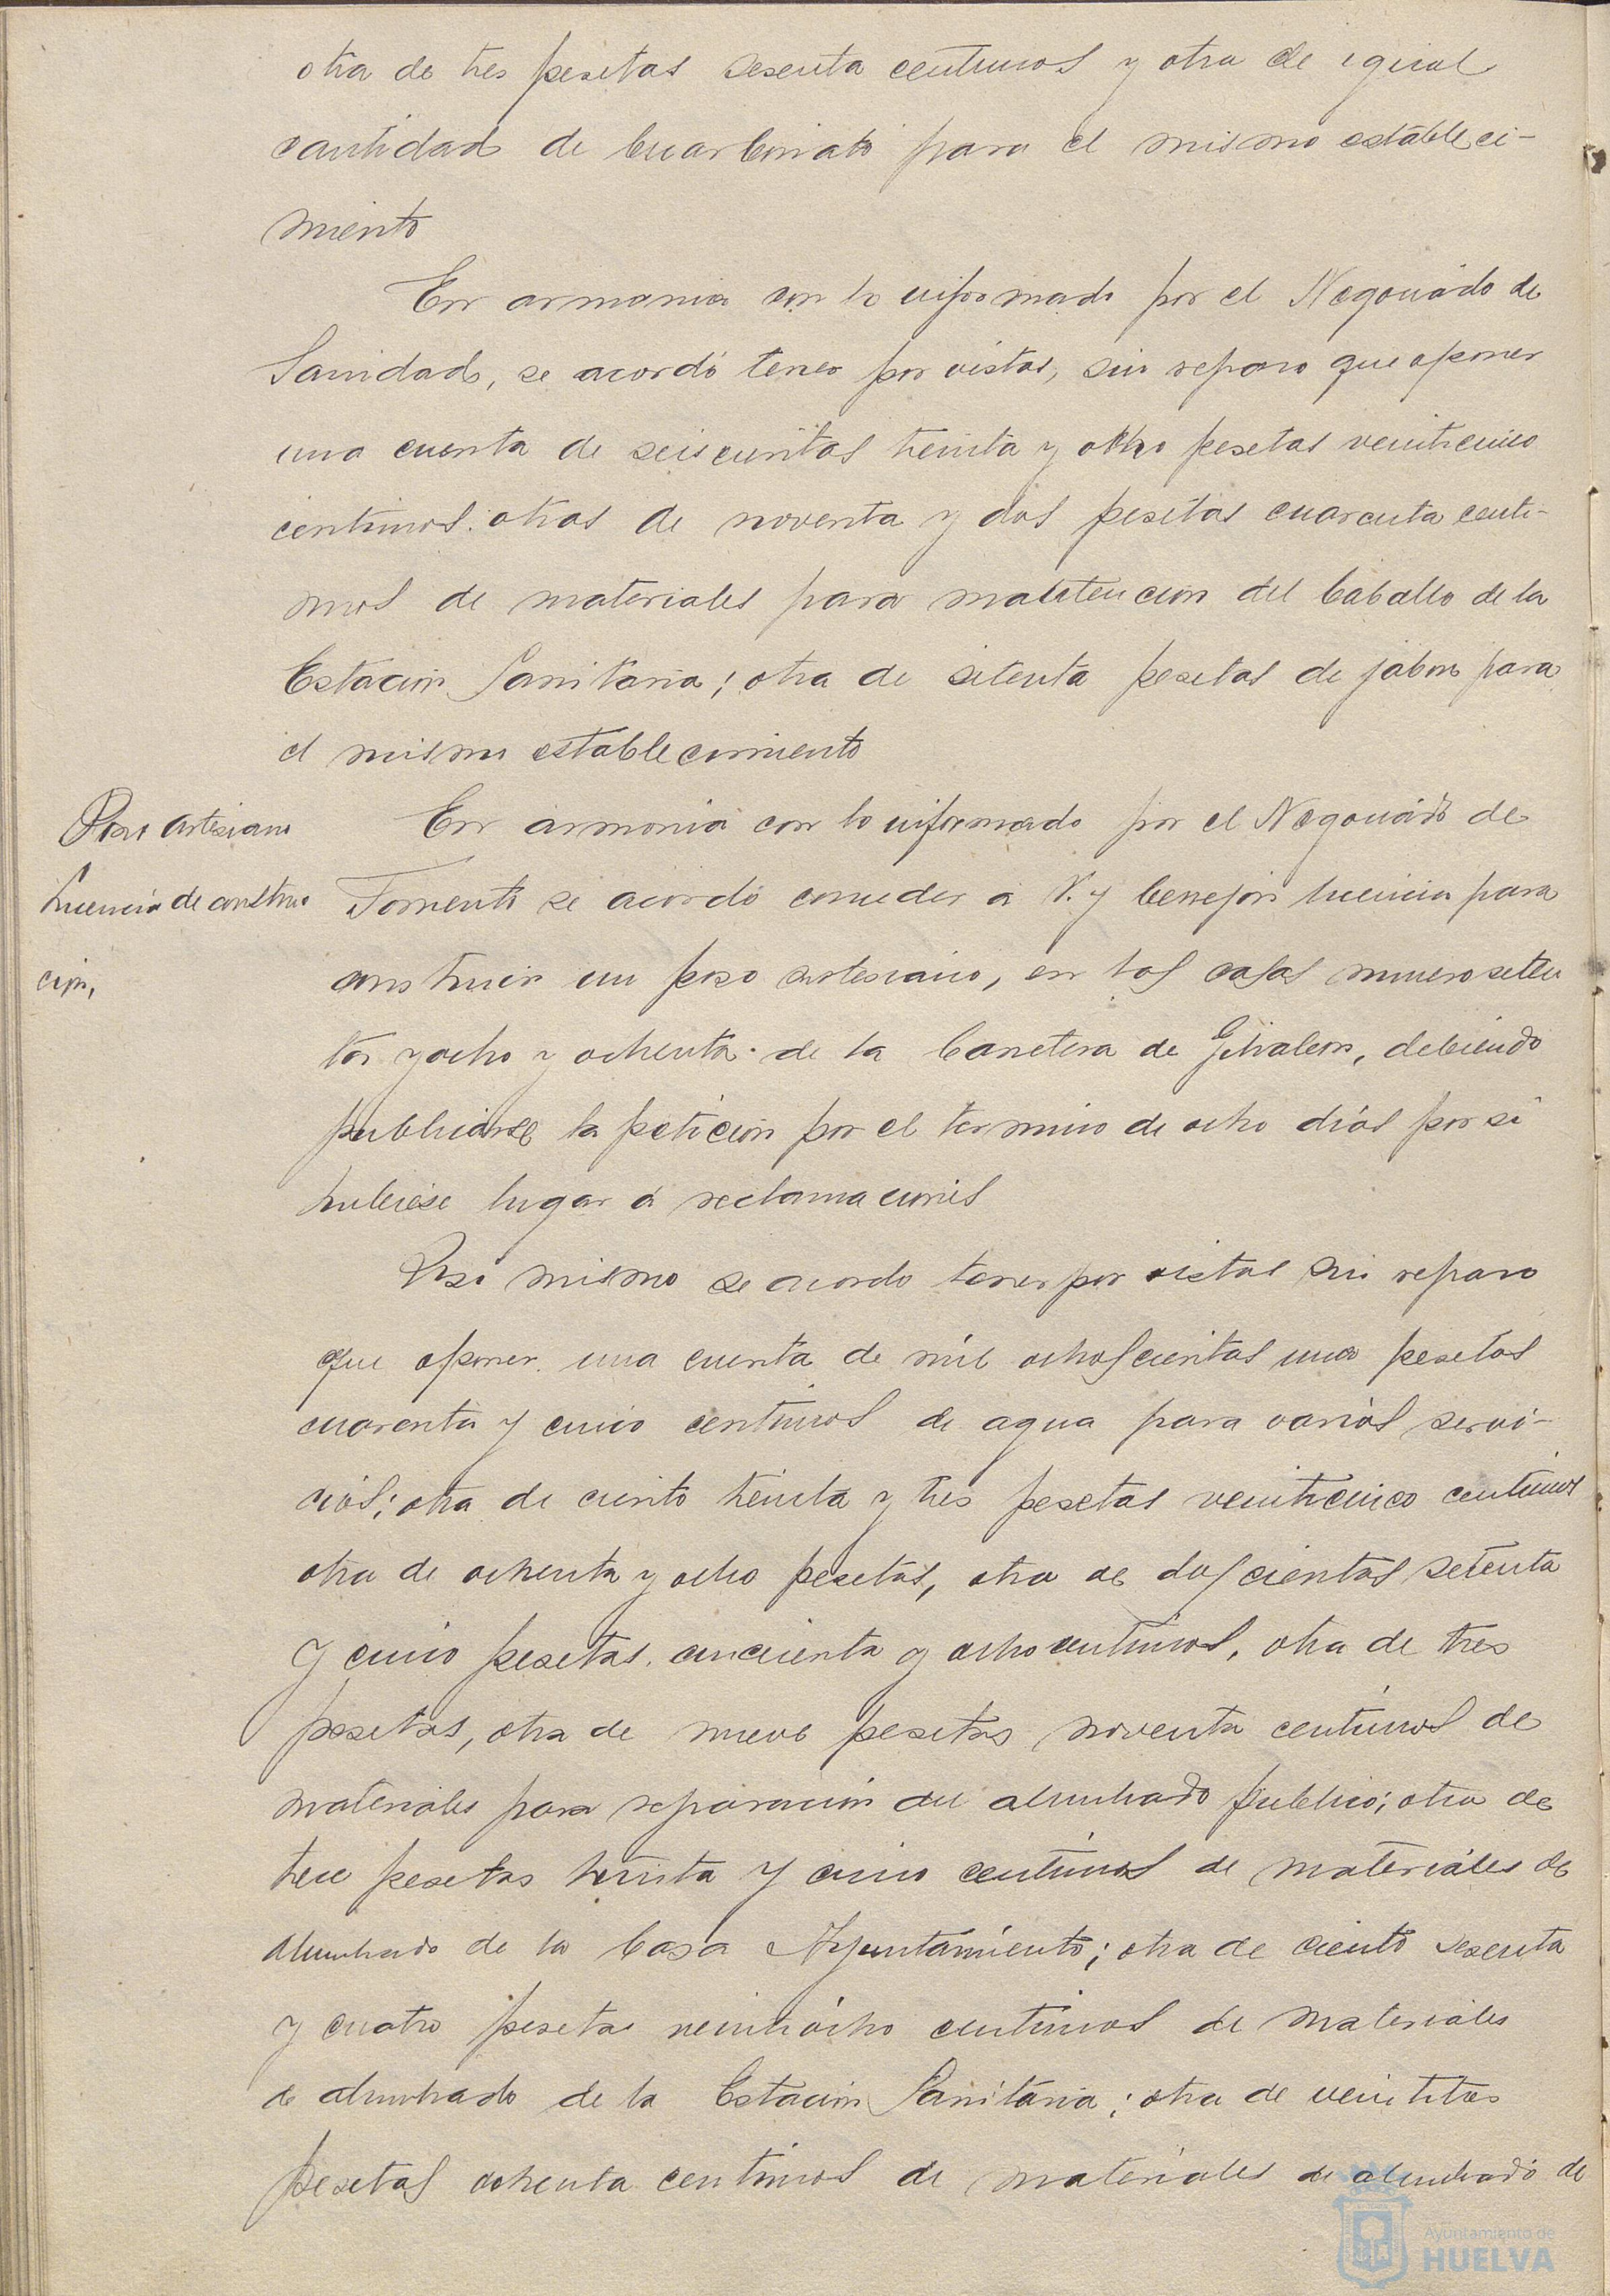 otra de tres pesetas sesenta centimos y otra de igual
cantidad de bicarbonato para el mismo estableci-
miento
En armonia con lo informado por el Negociado de
Sanidad, se acordó tener por vistas, sin reparo que oponer
una cuenta de seiscientas treinta y ocho pesetas veinticinco
centimos. otras de noventa y dos pesetas cuarenta centi-
mos de materiales para manutencion del Caballo de la
Estacion Sanitaria; otra de setenta pesetas de jabon para
el mismo establecimiento
Pozo Artesiano
Licencia de construc
cion,
En armonia con lo informado por el Negociado de
Fomento se acordó conceder a V. y licencia para
construir un pozo artesiano, en las casas numero seten
ta y ocho y ochenta de la Carretera de Gibraleon, debiendo
publicarse la peticion por el termino de ocho dias por si
hubiese lugar a reclamaciones
Asi mismo se acordo tener por vistas sin reparo
que oponer una cuenta de mil ochoscientas una pesetas
cuarenta y cinco centimos de agua para varios servi-
cios; otra de ciento treinta y tres pesetas veinticinco centimos
otra de ochenta y ocho pesetas, otra de doscientas setenta
y cinco pesetas cincuenta y ocho centimos, otra de tres
pesetas, otra de nueve pesetas noventa centimos de
materiales para reparacion del alumbrado publico; otra de
trece pesetas treinta y cinco centimos de materiales de
alumbrado de la Casa Ayuntamiento; otra de ciento sesenta
y cuatro pesetas veintiocho centimos de materiales
de alumbrado de la Estacion Sanitaria; otra de veintitres
pesetas ochenta centimos de materiales de alumbrado de
Ayuntamiento de
HUELVA